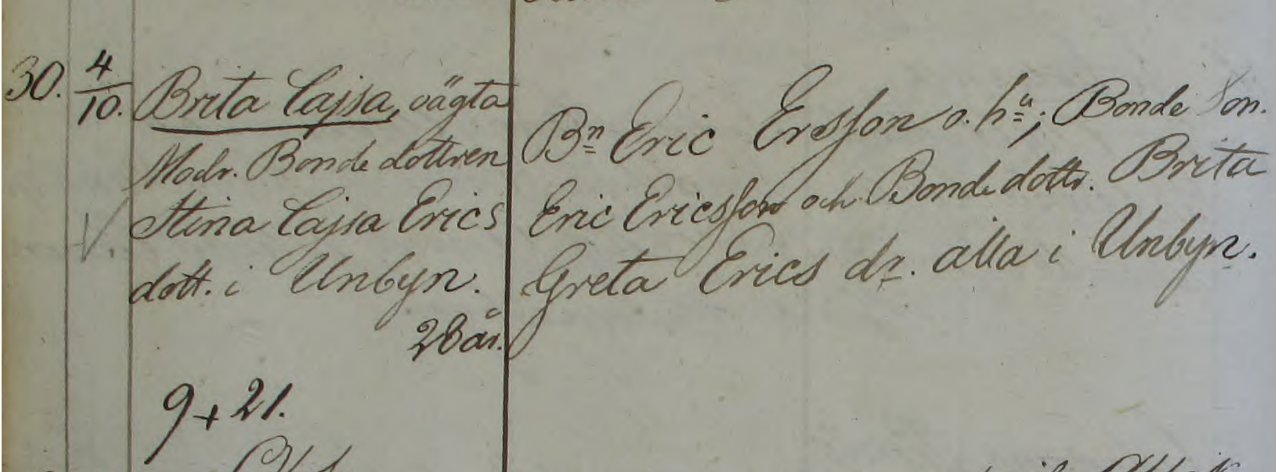 30. 4/10. Brita Cajsa, oägta
Modr. Bondedottren
Stina Cajsa Erics
dott. i Unbyn.
28 år.
9 + 21.
Bn Eric Ersson o. hu; Bonde Son.
Eric Ericsson och Bondedottr. Brita
Greta Erics dr. alla i Unbyn.